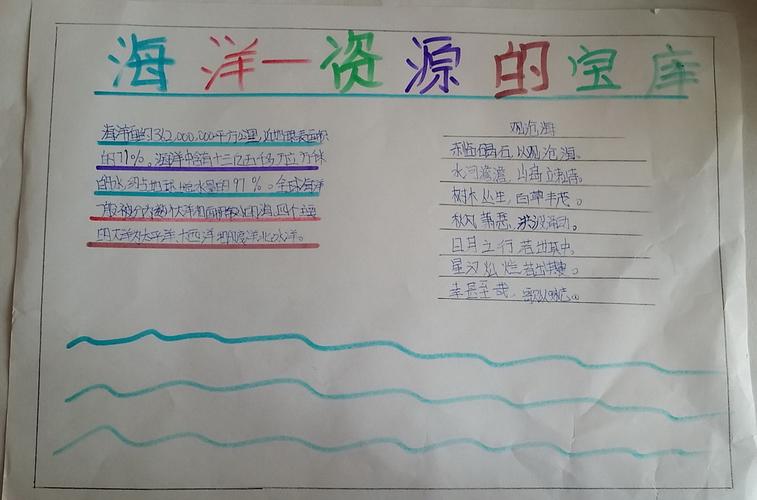 海洋一资源的宝库
海洋面约362,000,000平方公里,近地球表面积
的71%。海洋中含有十三亿五千多万立方千米
的水,约占地球上总水量的97%。全球海洋
一般被分为数个大洋和面积较小的海。四个主要
的大洋为太平洋、大西洋和印度洋、北冰洋。
观沧海
东临碣石,以观沧海。
水何澹澹,山岛竦峙。
树木丛生,百草丰茂。
秋风萧瑟,洪波涌动。
日月之行,若出其中。
星汉灿烂,若出其里。
幸甚至哉,歌以咏志。